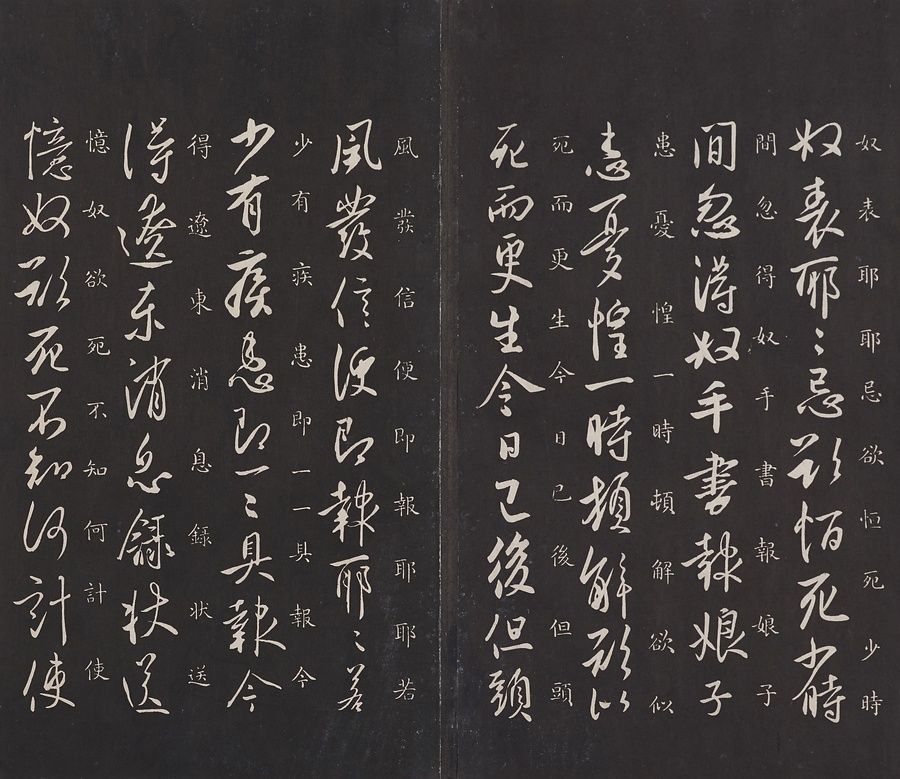 奴表耶耶忌欲恒死少時
奴表耶〻忌欲恒死少時
間忽得奴手書報娘子
間忽得奴手書報娘子
患憂惶一時頓解欲似
患憂惶一時頓解欲似
死而更生今日已後但頭
死而更生今日已後但頭
風發信便即報耶耶若
風發信便即報耶〻若
少有疾患即一一具報今
少有疾患即一〻具報今
得遼東消息録状送
得遼東消息録状送
憶奴欲死不知何計使
憶奴欲死不知何計使